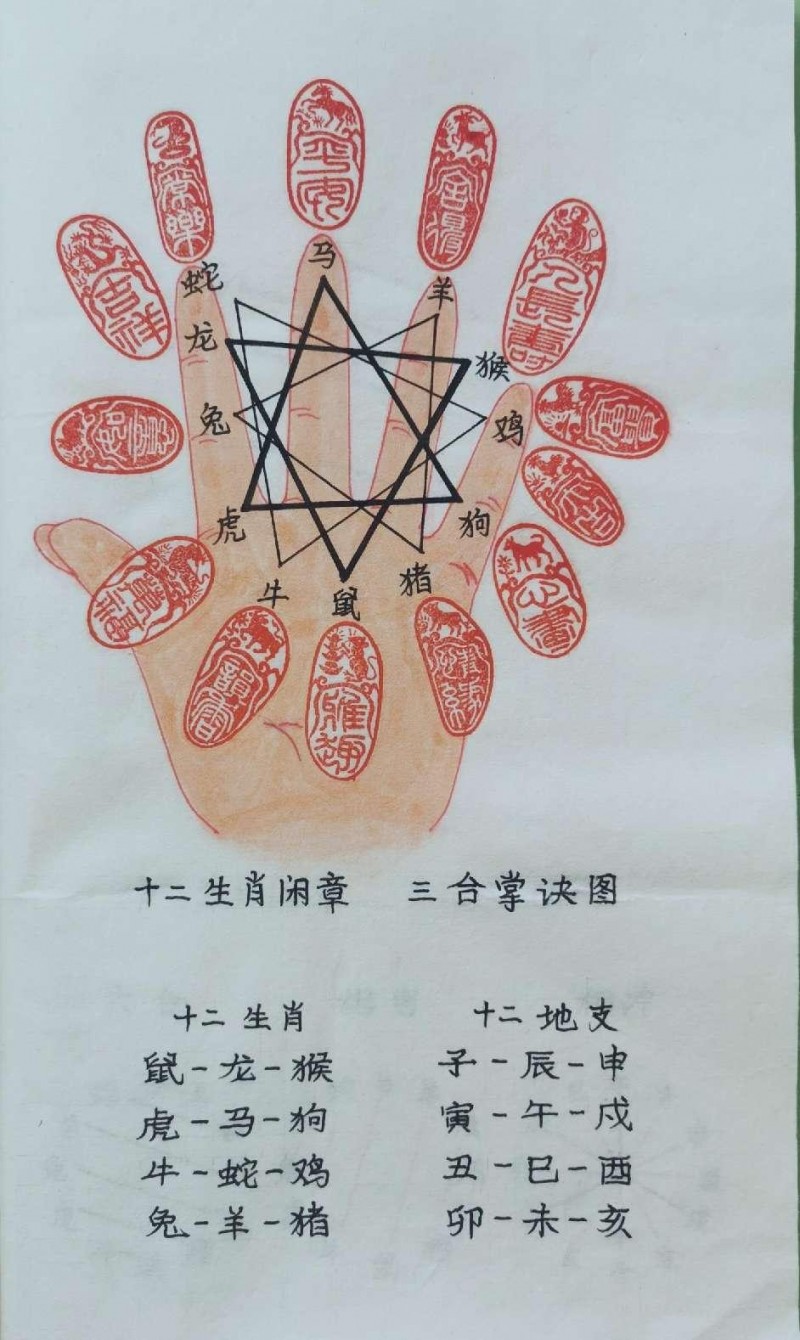 平安
常樂
吉祥
人長壽
马
蛇
羊
龙
猴
兔
鸡
虎
狗
牛
鼠
猪
十二生肖闲章 三合掌诀图
十二生肖 十二地支
鼠-龙-猴 子-辰-申
虎-马-狗 寅-午-戍
牛-蛇-鸡 丑-巳-酉
兔-羊-猪 卯-未-亥